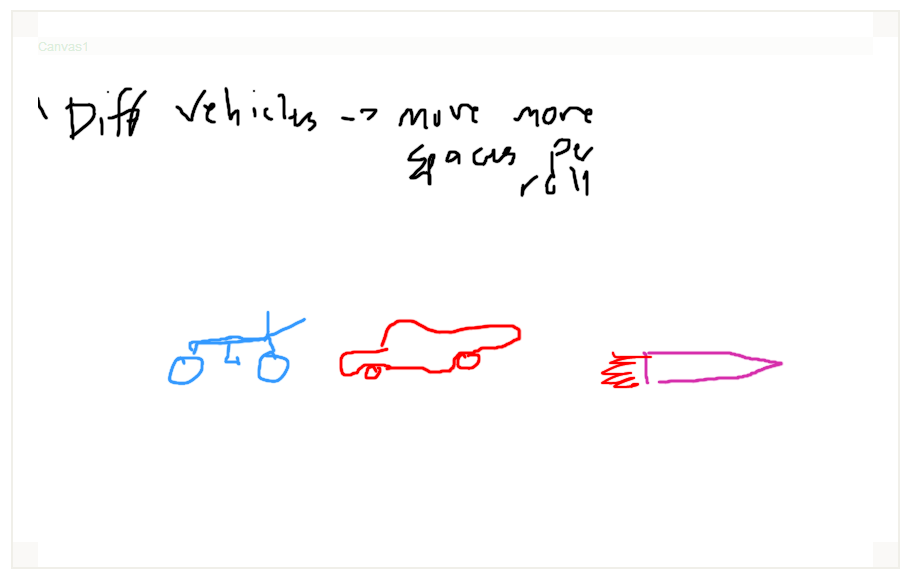 Canvas1
Diff vehicles -> move more
spaces per
roll